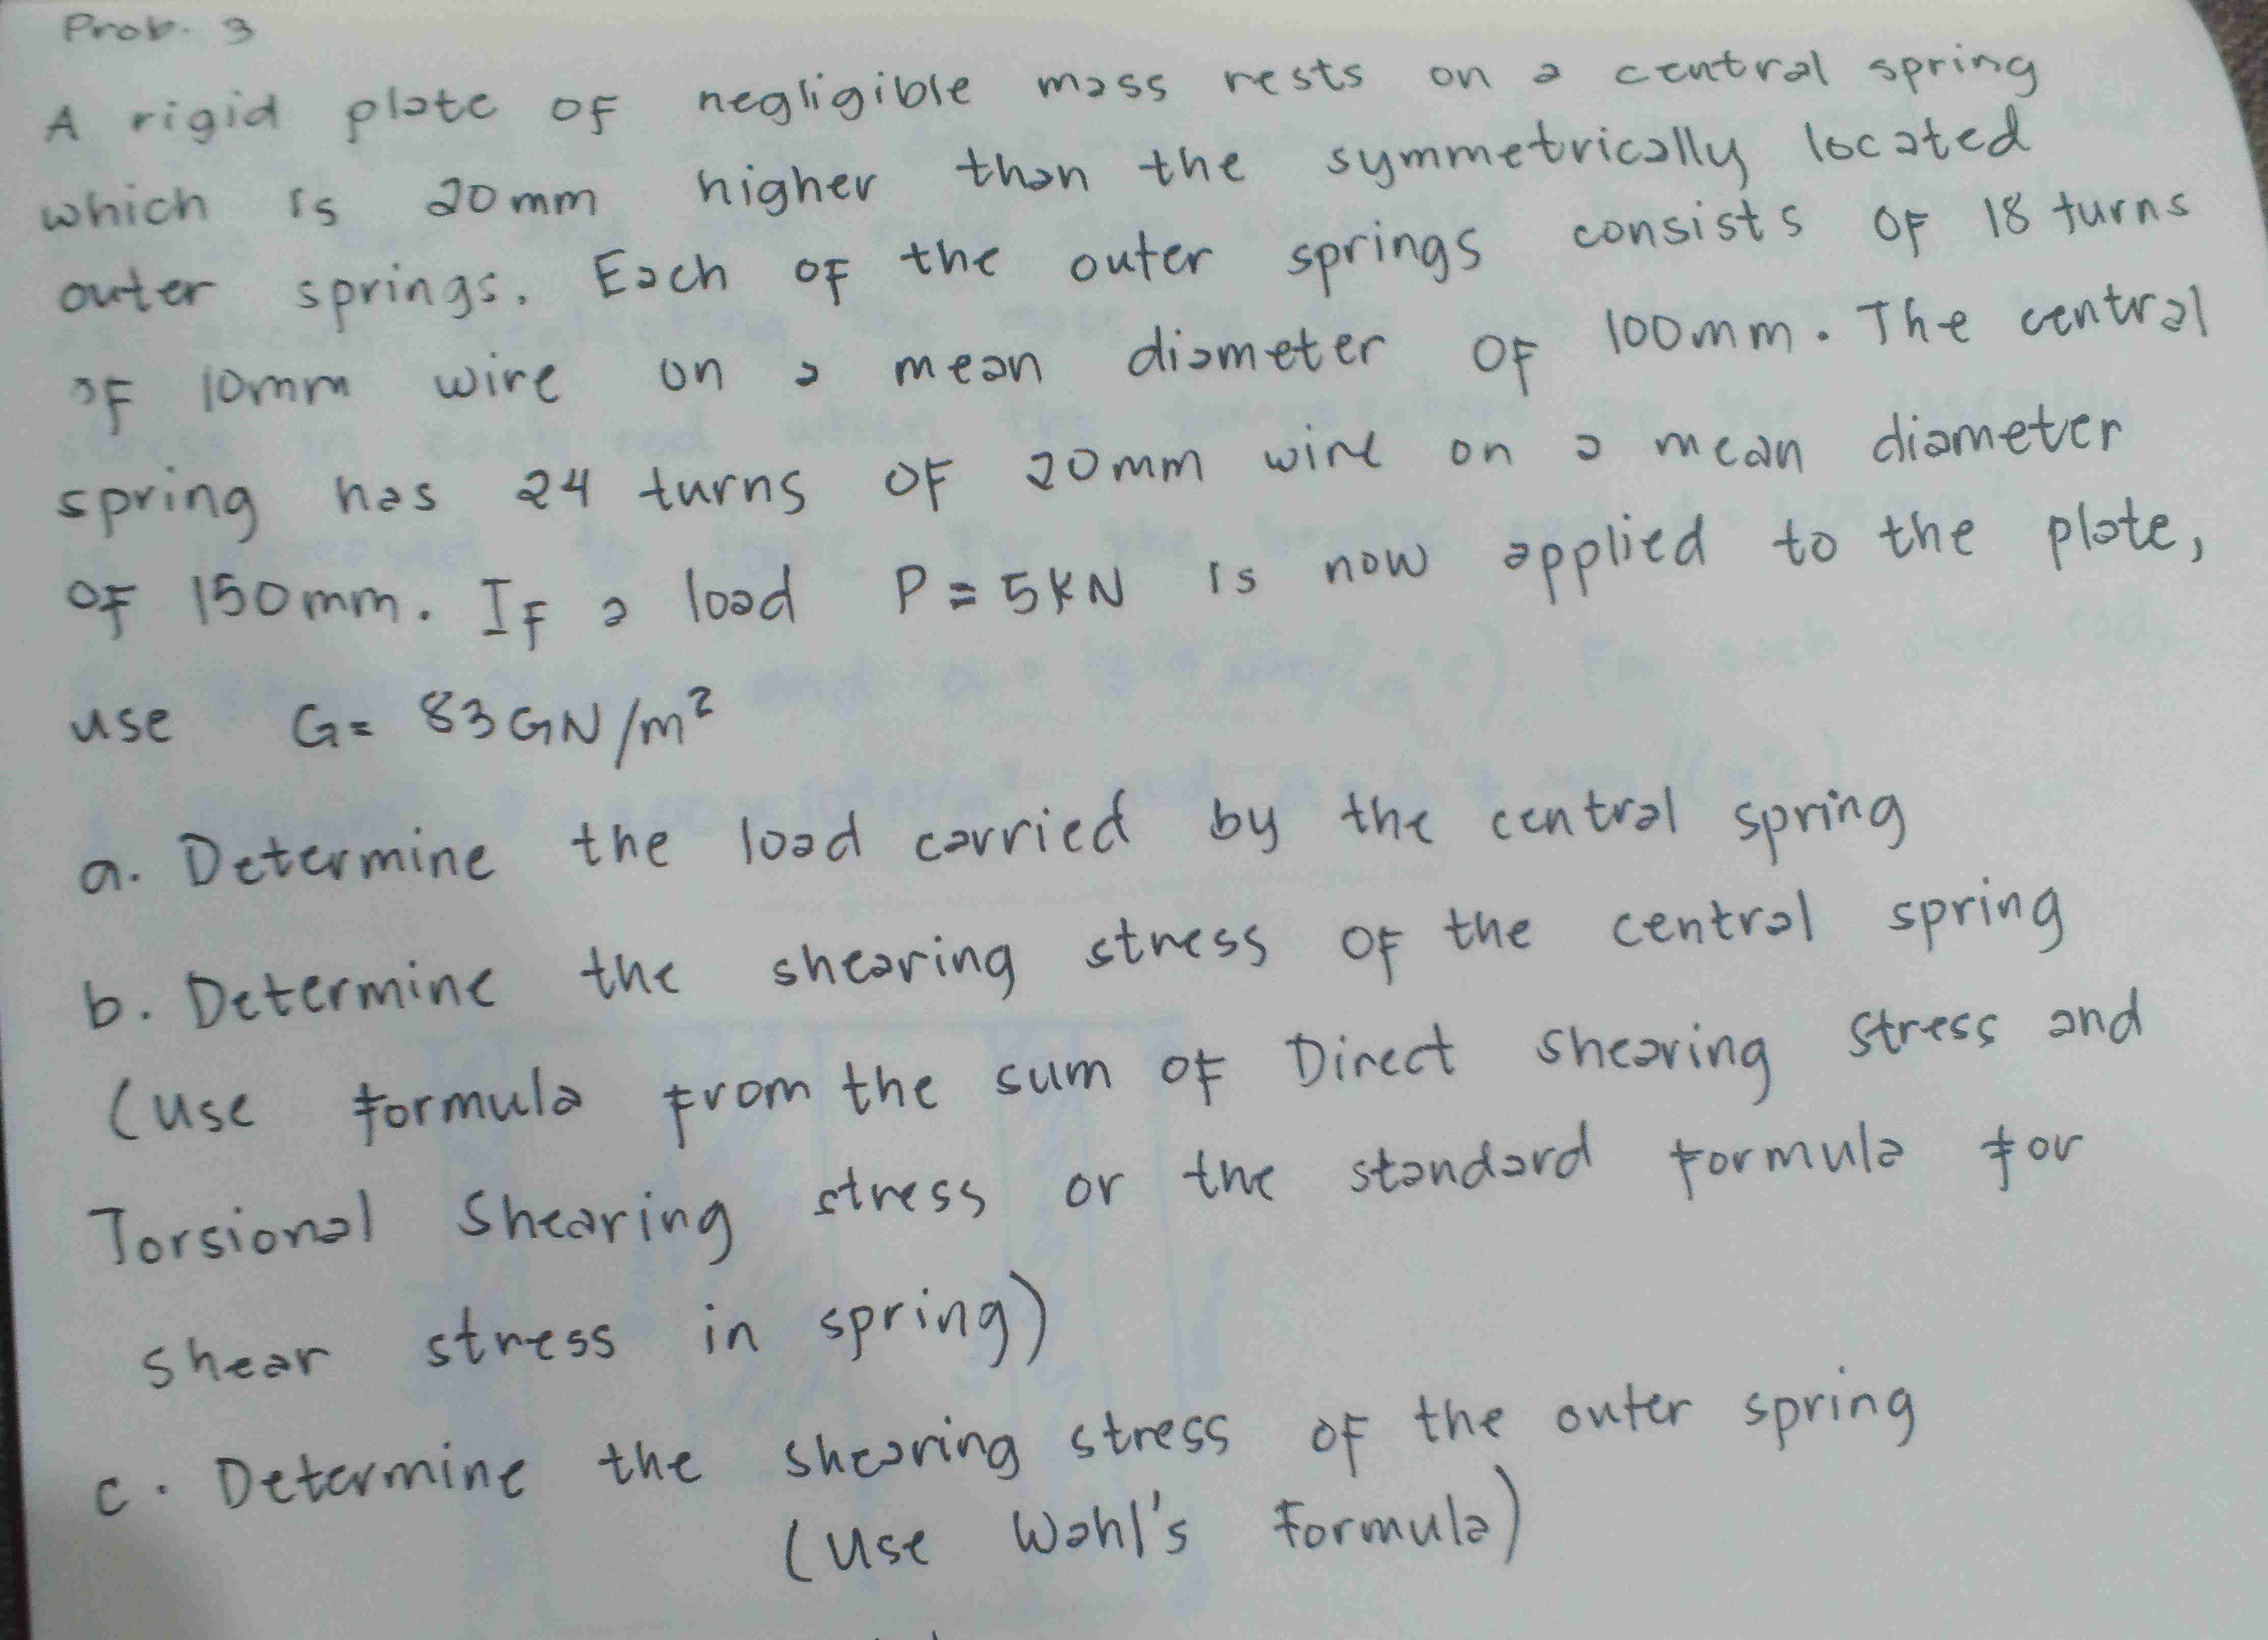 Prob. 3
A rigid plate of negligible mass rests on a central spring
which is 20mm higher than the symmetrically located
outer springs. Each of the outer springs consists of 18 turns
of 10mm wire on a mean diameter of 100mm. The central
spring has 24 turns of 20mm wire on a mean diameter
of 150mm. If a load P = 5KN is now applied to the plate,
use G= 83GN/m²
a. Determine the load carried by the central spring
b. Determine the shearing stress of the central spring
(use formula from the sum of Direct shearing stress and
Torsional Shearing stress or the standard formula for
shear stress in spring)
c. Determine the shearing stress of the outer spring
(use Wahl's Formula)